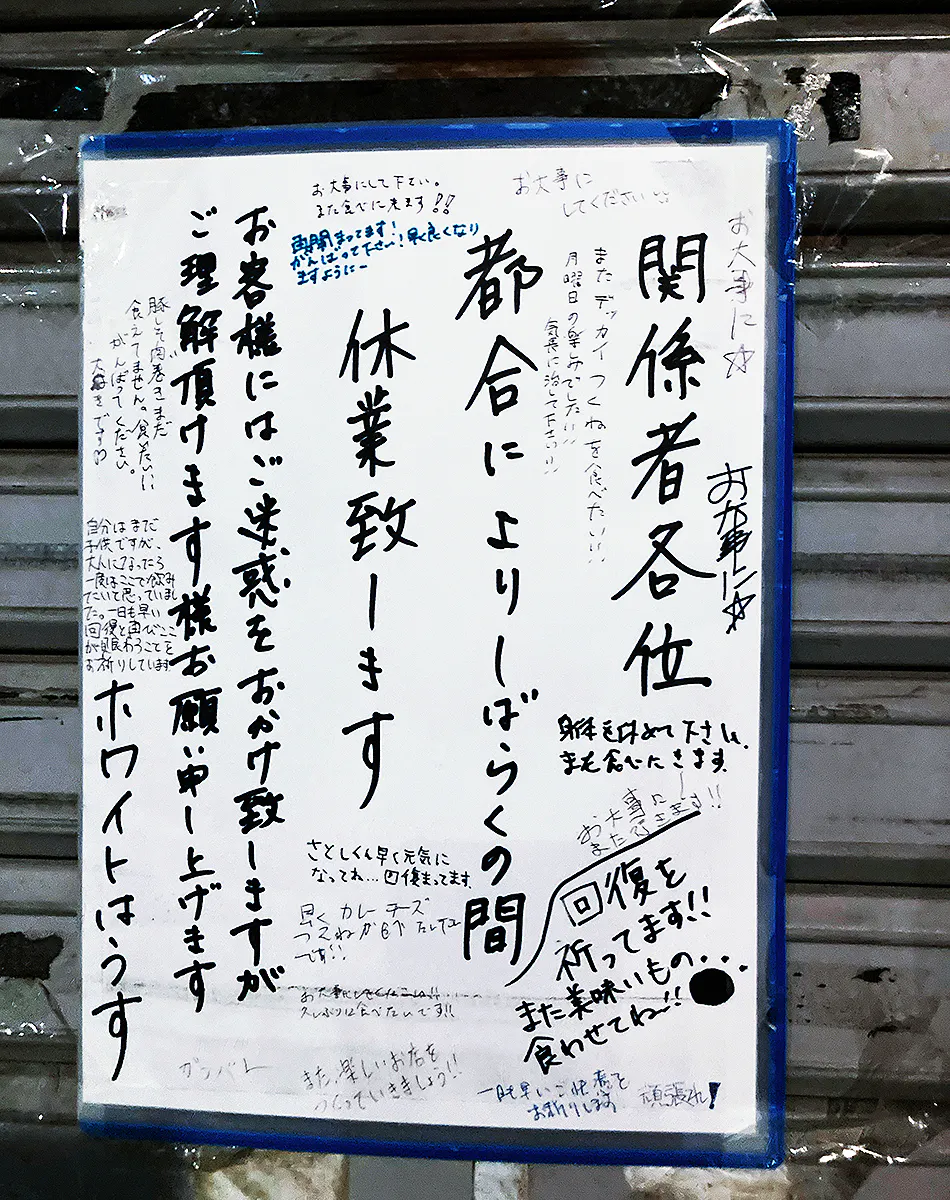 関係者各位
都合によりしばらくの間
休業致します
お客様にはご迷惑をおかけ致しますが
ご理解頂けます様お願い申し上げます
ホワイトはうす
お大事に☆
お大事に☆
お大事に
してください
またデッカイつくねを食べたい!!
月曜日の楽しみでした!!
気長に治して下さい!!
お大事にして下さい。
また食べに来ます!!
再開まってます!
がんばって下さい!早く良くなり
ますようにー
豚しそ肉巻きまだ
食えてません。食べたいい
がんばってください。
大好きです
自分はまだ
子供ですが、
大人になったら
一度はここで飲み
たいと思っていまし
た。一日も早い
回復と再びここ
が賑わうことを
お祈りしています
身体を休めて下さい。
また食べにきます。
お大事に
また来ます!!
回復を
祈ってます!!
また美味いもの...
食わせてね〜!!
さとしくん早く元気に
なってね...回復まってます。
早くカレーチーズ
つくねが食べたい
です!!
お大事にしてください!!
久しぶりに食べたいです!!
ガンバレ
また、楽しいお店を
つくっていきましょう!!
一日も早いご快復を
お祈りします
頑張れ!